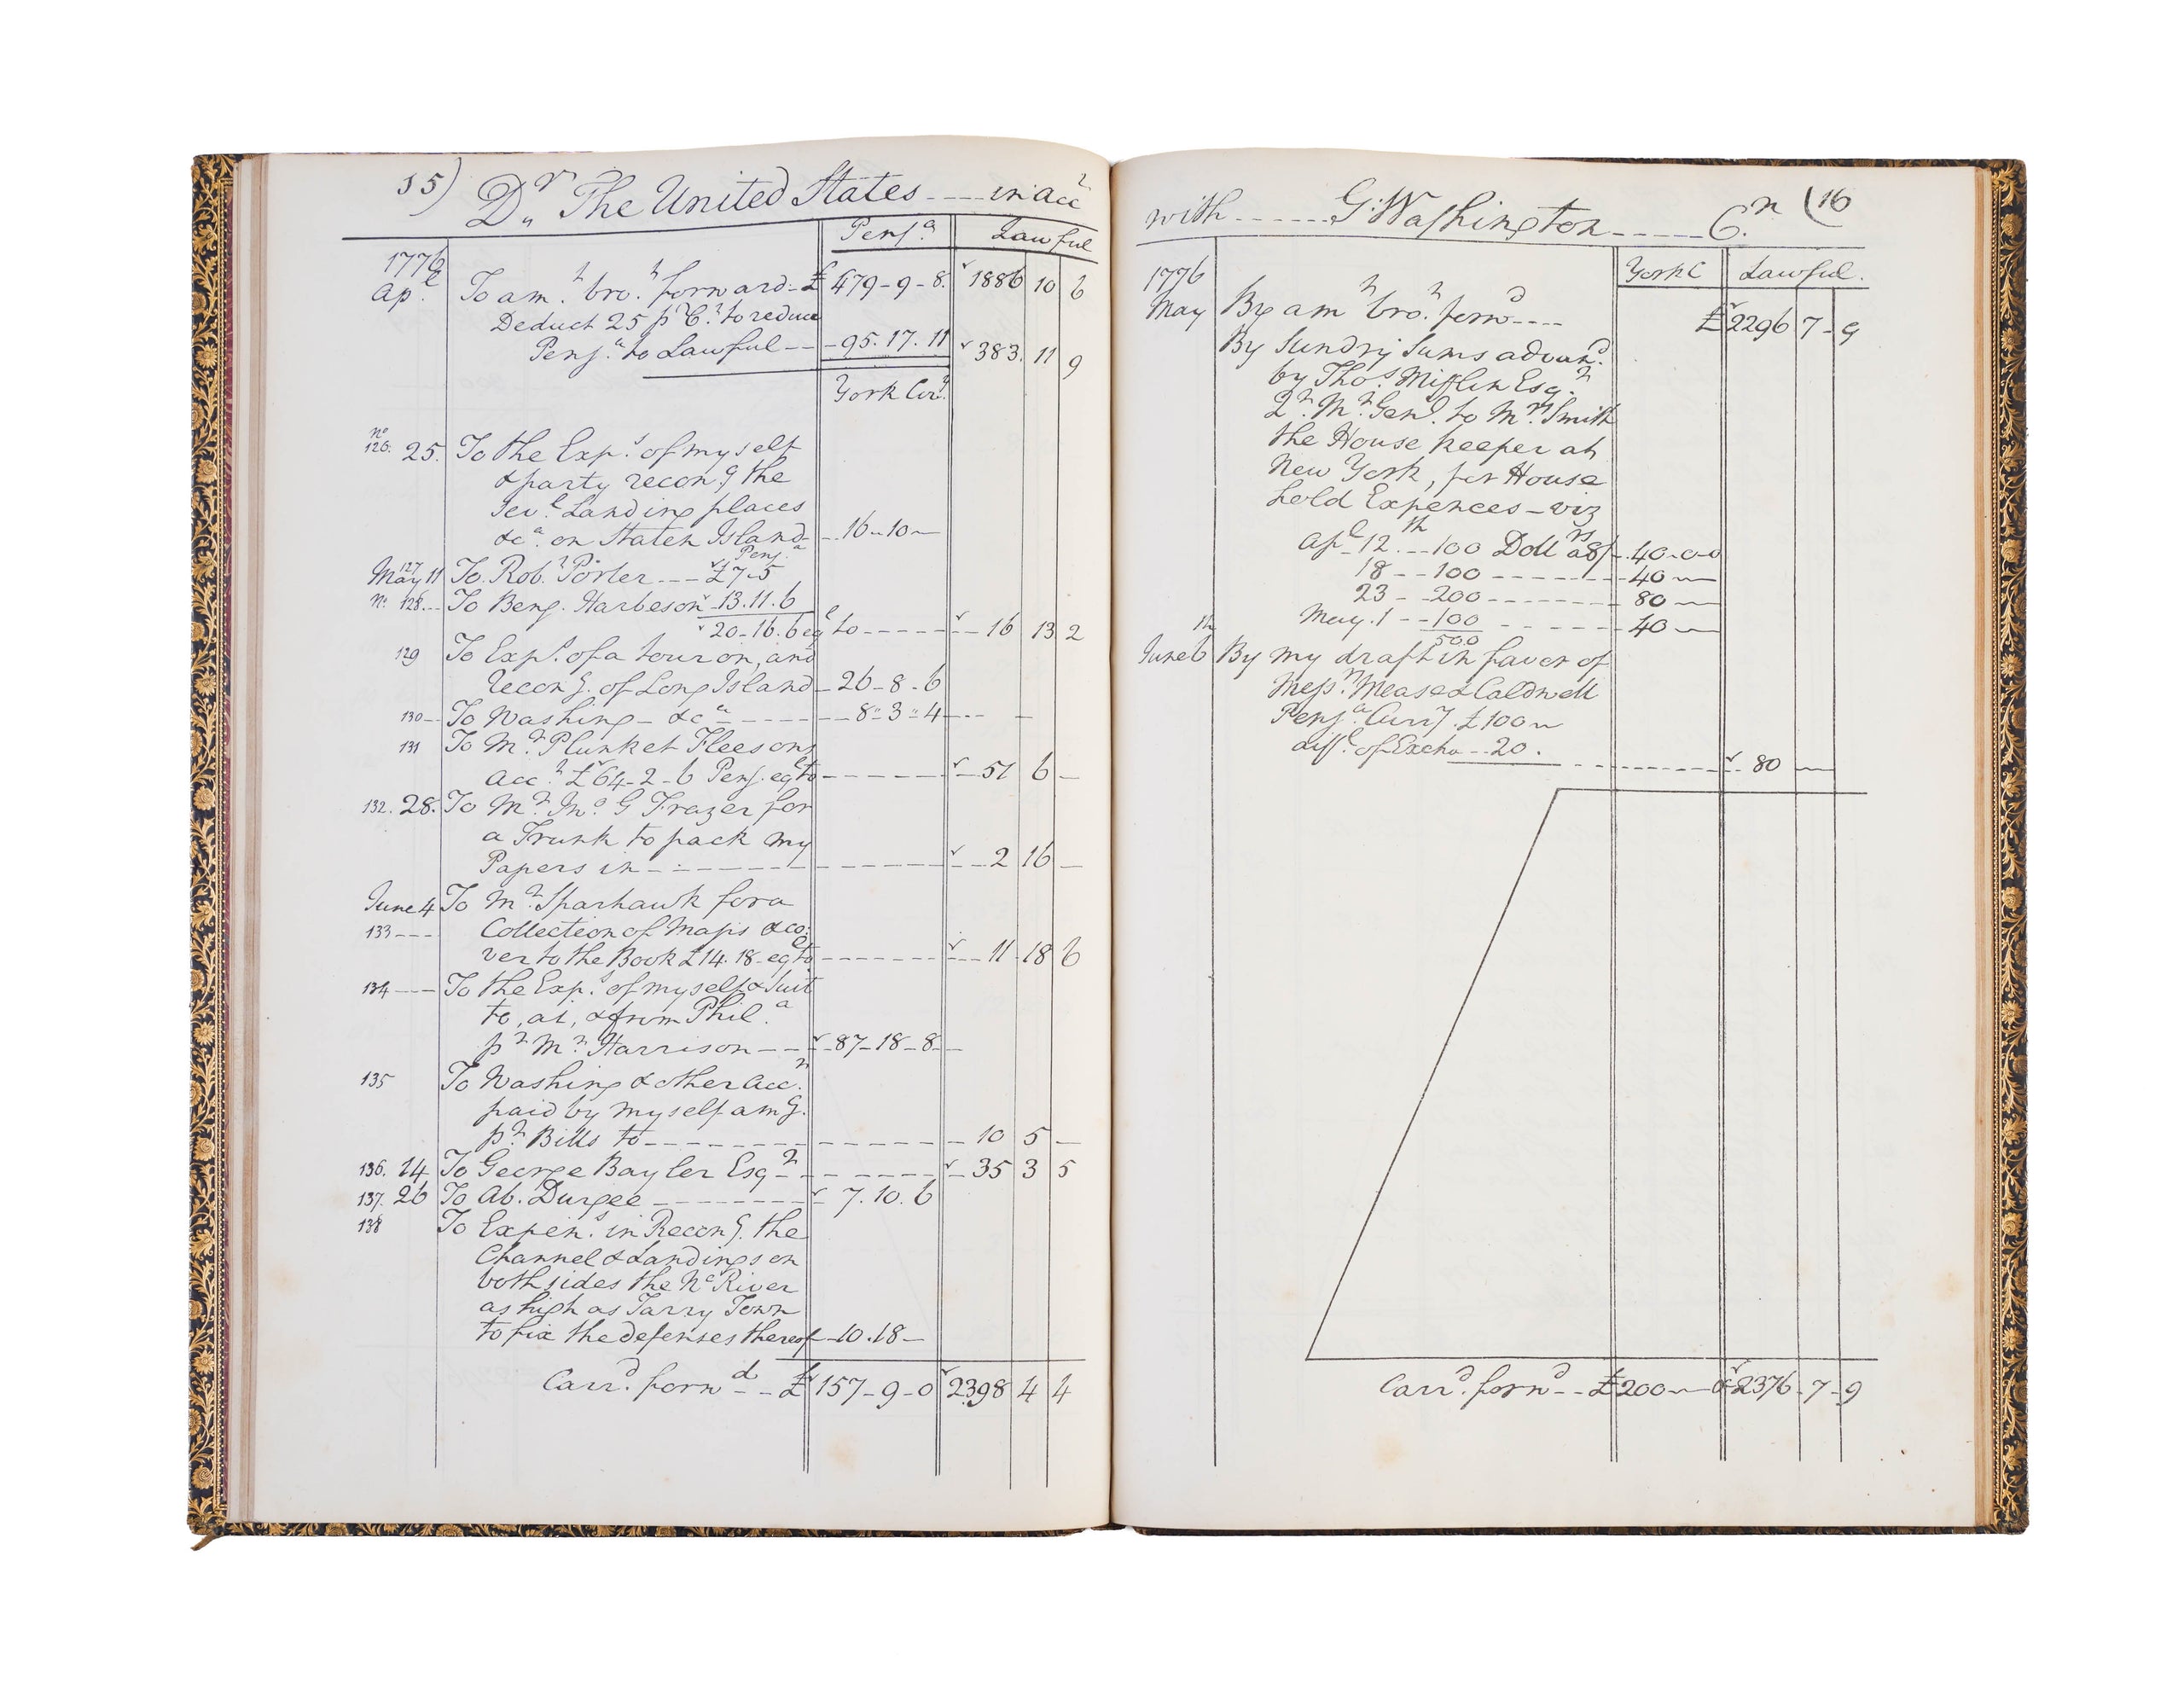 15) Dr. The United States ---- in acct
Pensa. Lawful
1776
Apl. To amt. brot. forward - £ 479-9-8. 1886 10 6
Deduct 25 pr Ct. to reduce
Pensa. to Lawful --- 95.17.11 383. 11 9
York Curry.
No 126. 25. To the Exps. of myself
& party recong. the
sevl. Landing places
&ca. on Staten Island - 16-10-
Pensa.
127 May 11 To Robt. Porter ---- £7.5
No. 128 --- To Benj. Harbeson - 13.11.6
20-16.6 eql to ------ 16 13 2
129 To Exps. of a tour on, and
recong. of Long Island - 26-8-6
130 -- To Washing - &ca ------ 8"3"4 ---
131 To Mr. Plunket Fleesons
acct. £64-2-6 Pens. eql to ------ 51 6 -
132. 28. To Mr. Jno. G Frazer for
a Trunk to pack my
Papers in ---------- 2 16 -
June 4 To Mr. Sparhawk for a
133 --- Collection of Maps & co:
ver to the Book £14.18 - eql to ------ 11 18 6
134 --- To the Exps. of myself & Suit
to, at, & from Phila.
pr Mr. Harrison --- 87-18-8 -
135 To Washing & other acct.
paid by myself amg.
pr. Bills to ---------- 10 5 -
136. 14 To George Bayler Esqr ------ 35 3 5
137. 26 To Ab. Durgee -------- 7.10.6
138 To Expens. in Recong. the
Channel & Landings on
both sides the No River
as high as Tarry Town
to fix the defenses thereof - 10.18 -
Carrd. forwd -- £ 157-9-0 2398 4 4
with ------ G: Washington ----- Cr. (16
York C Lawful.
1776
May By amt brot. forwd ---- £2296 7-9
By Sundry Sums advand.
by Thos. Mifflin Esqr.
Qr. Mr. Genl. to Mrs Smith
the House keeper at
New York, for House
hold Expences - viz
Apl 12th -- 100 Dollrs a 8/ - 40-0-0
18 -- 100 ------- 40 -
23 -- 200 ------- 80 -
May. 1 -- 100 ------- 40 -
500
June 6th By my draft in favor of
Messrs. Mease & Caldwell
Pensa. Curry. £100 -
diffe. of Excha -- 20. -------- 80 -
Carrd. forwd -- £ 200 - £ 2376-7-9